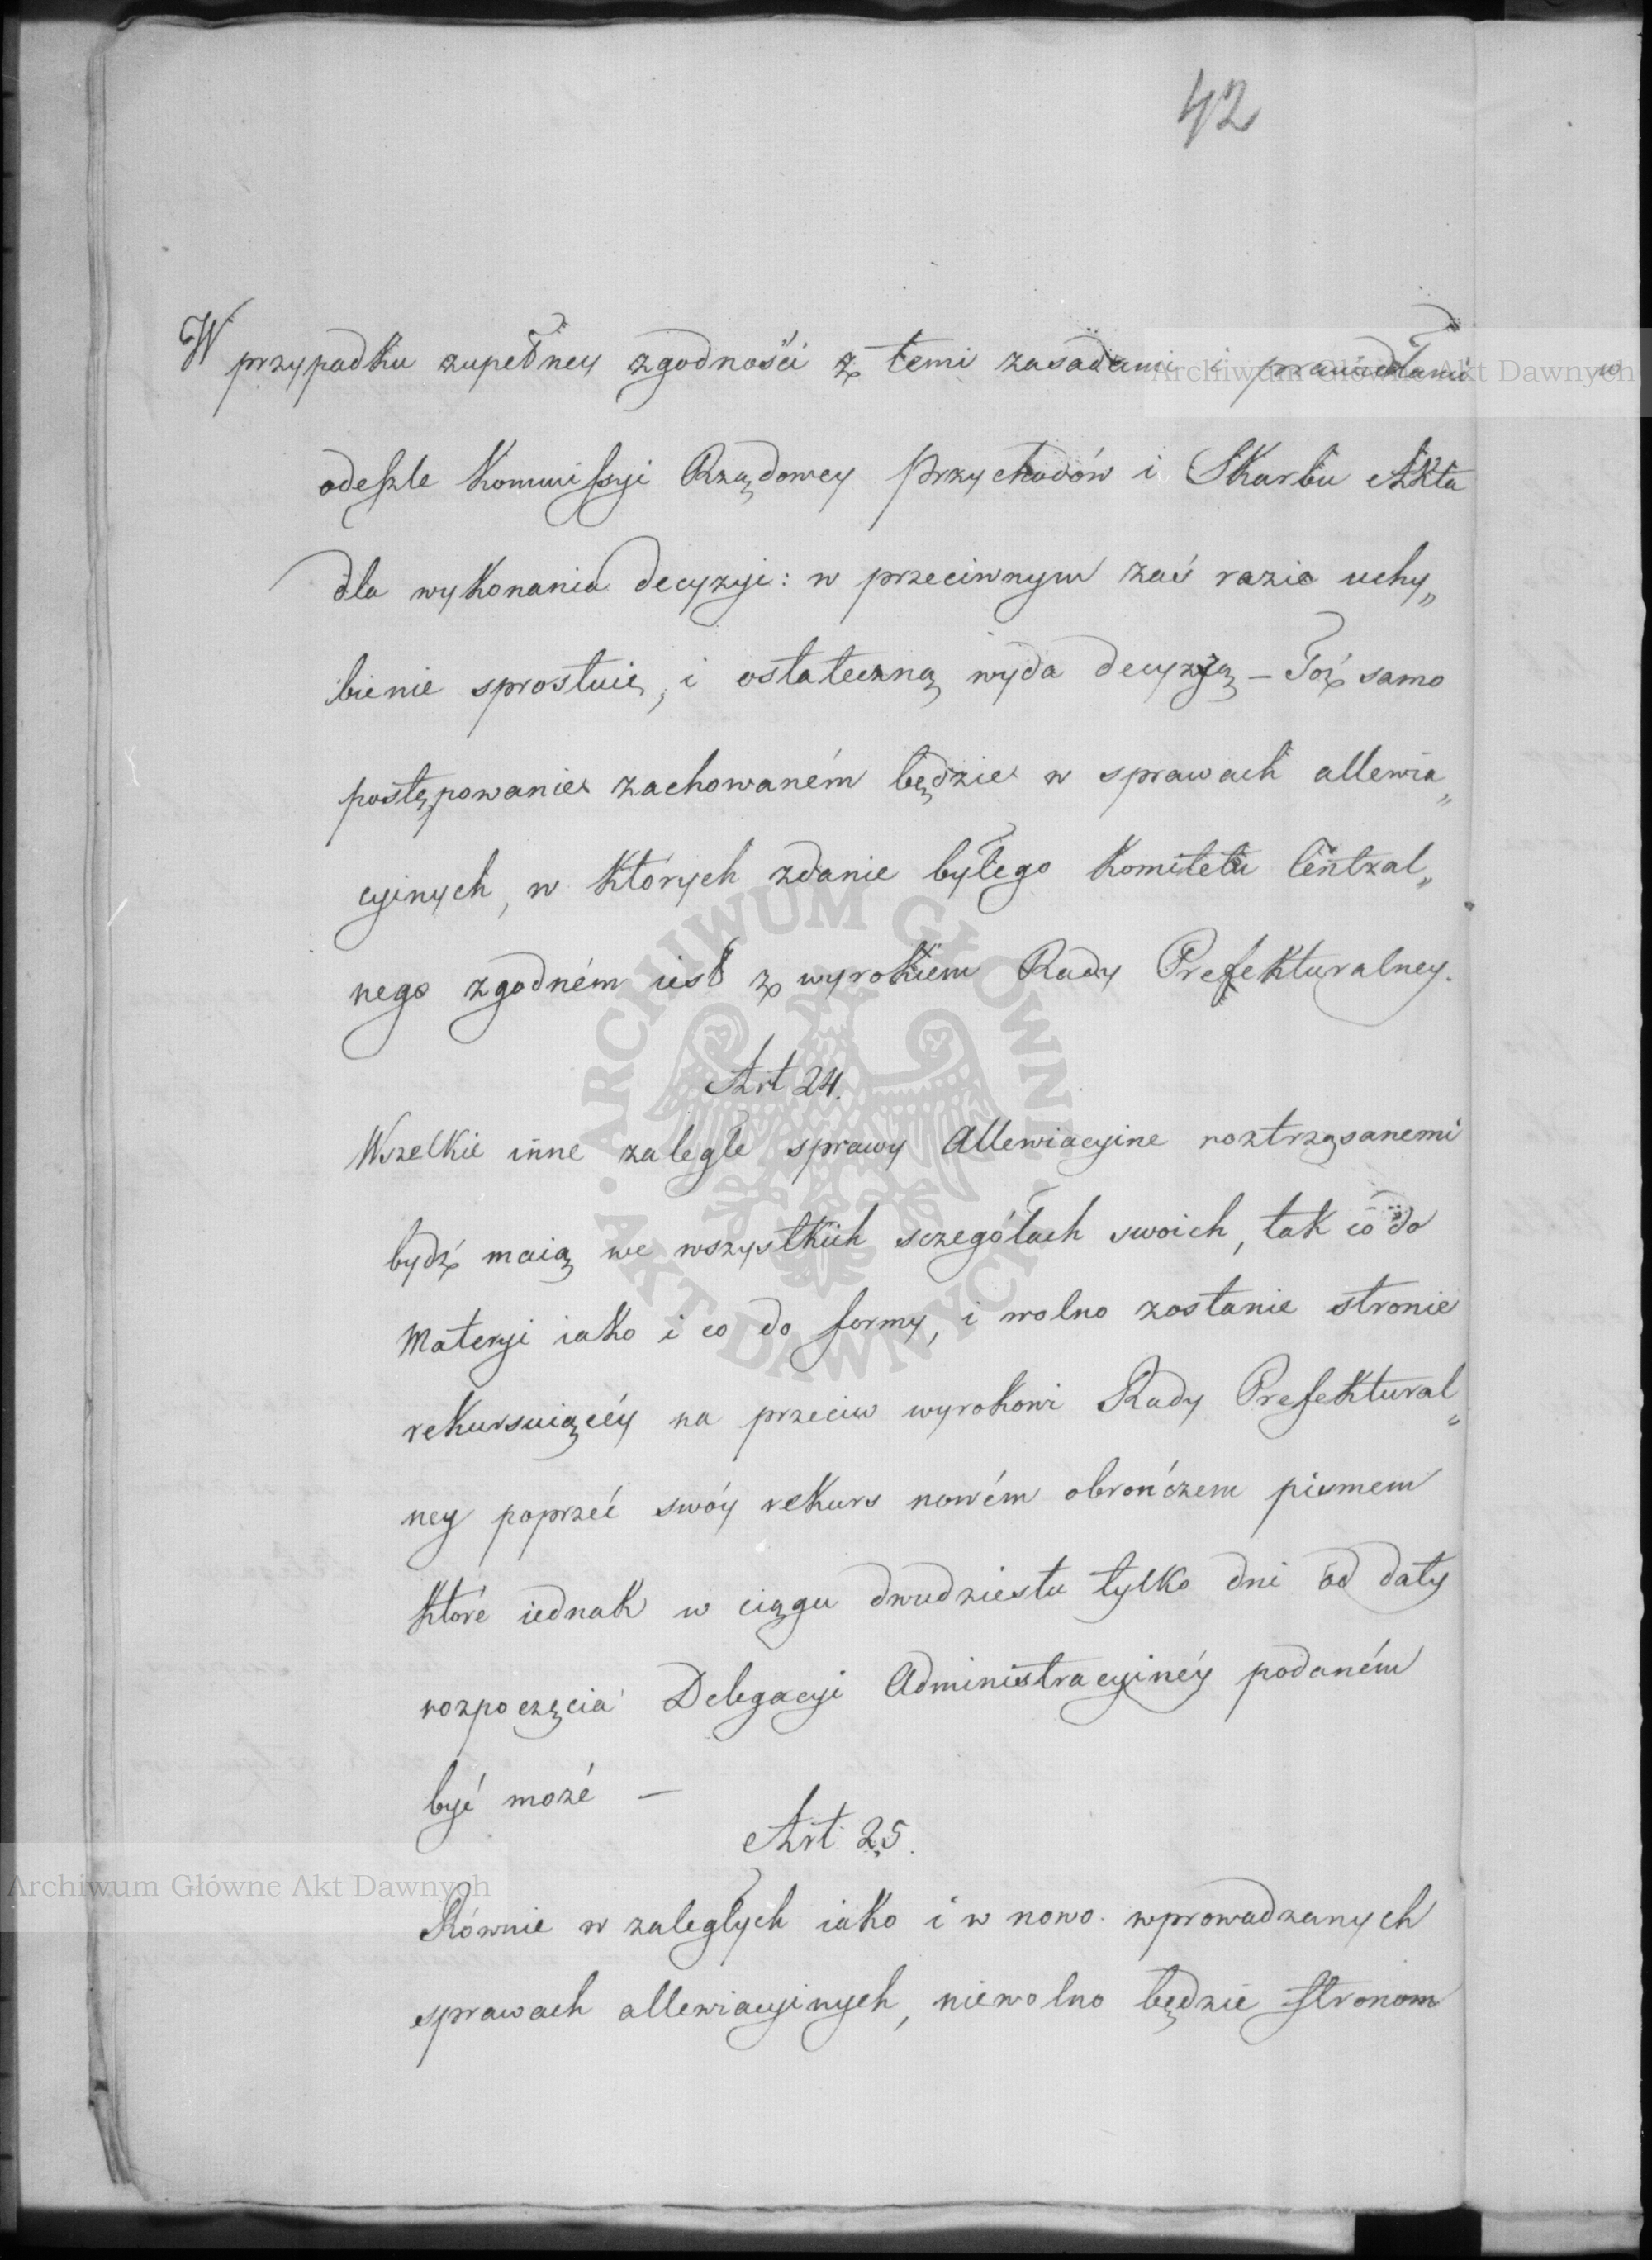 42
W przypadku zupełney zgodności z temi zasadami i prawidłami
odeszle Kommissyi Rządowey Przychodów i Skarbu Akta
dla wykonania decyzyi: w przeciwnym zaś razie uchy„
bienie sprostuie, i ostateczną wyda decyzyą – Toż samo
postępowanie zachowaném będzie w sprawach allewia„
cyinych, w których zdanie byłego Komitetu Central„
nego zgodném iest z wyrokiem Rady Prefekturalney.
Art 24.
Wszelkie inne zaległe sprawy Allewiacyine roztrząsanemi
bydź maią we wszystkich sczegółach swoich, tak co do
Materyi iako i co do formy, i wolno zostanie stronie
rekursuiącéy na przeciw wyrokowi Rady Prefektural„
ney poprzeć swóy rekurs nowém obrończem pismem
które iednak w ciągu dwudziestu tylko dni od daty
rozpoczęcia Delegacyi Administracyinéy podaném
być może –
Art. 25.
Równie w zaległych iako i w nowo wprowadzanych
sprawach allewiacyinych, niewolno będzie stronom
Archiwum Główne Akt Dawnych
Archiwum Główne Akt Dawnych
ARCHIWUM GŁÓWNE AKT DAWNYCH